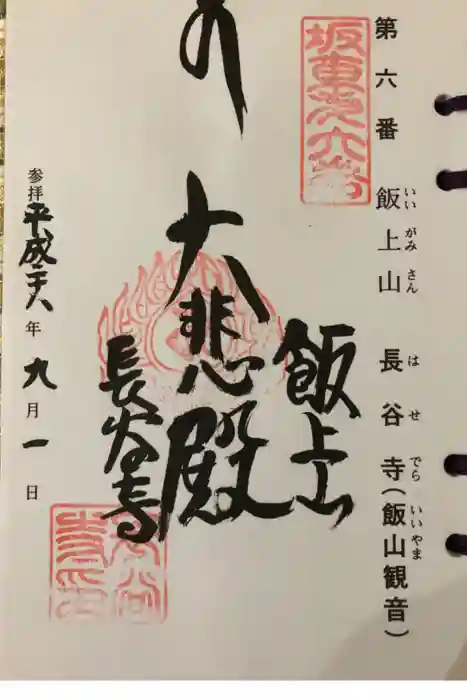 いいがみさん はせでら いいやま
第六番 飯上山 長谷寺(飯山観音)
坂東第六番
飯上山
大悲殿
長谷寺
参拝 平成二八年九月一日